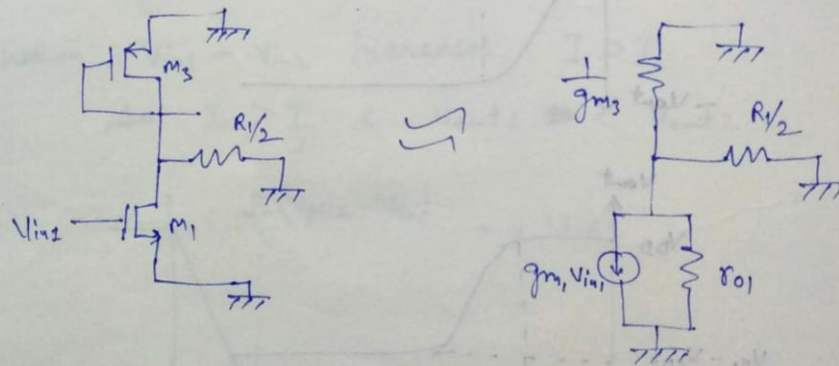 M3
R1/2
Vin1
M1
≈
1/gm3
R1/2
gm1Vin1
ro1